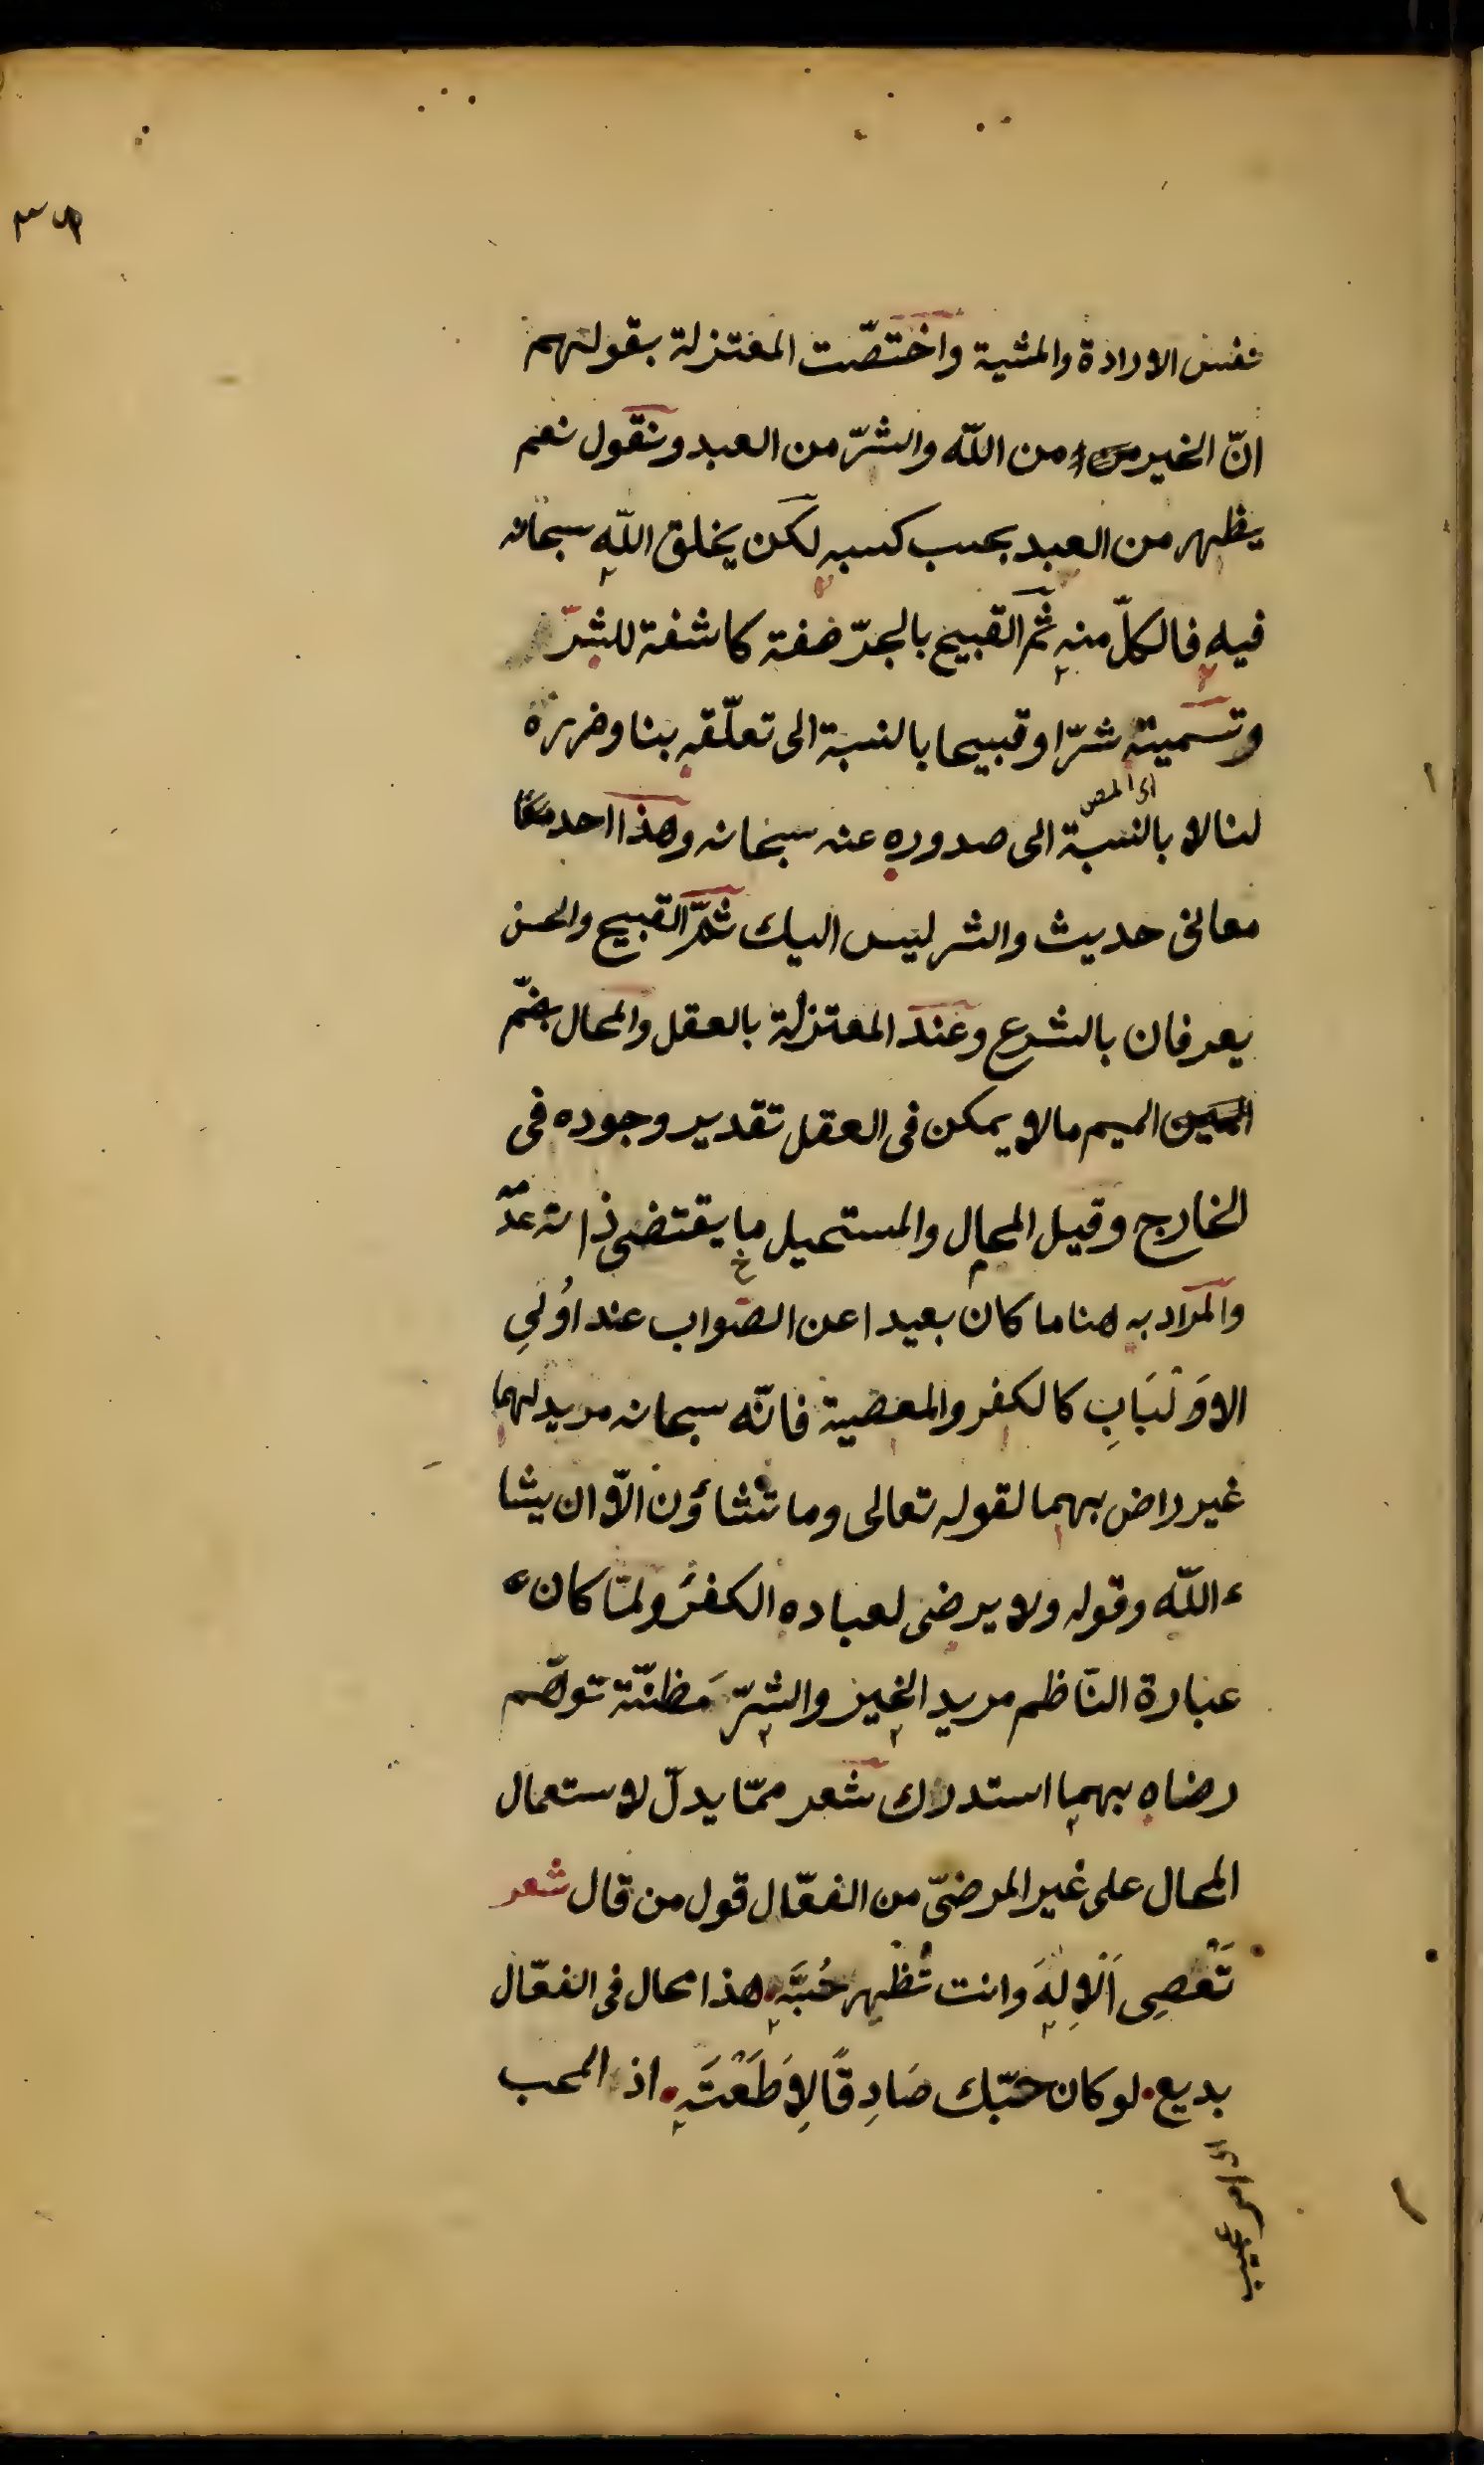 نفس الارادة والمشية واختصّت المعتزلة بقولهم
انّ الخير من اللّه والشرّ من العبد ونقول نعم
يظهر من العبد بحسب كسبه لكن يخلق اللّه سبحانه
فيه فالكلّ منه ثمّ القبيح بالجرّ صفة كاشفة للشرّ
وتسميته شرّا وقبيحا بالنسبة الى تعلّقه بنا وضرره
لنا لا بالنسبة الى صدوره عنه سبحانه وهذا احد
معانى حديث والشر ليس اليك ثمّ القبيح والحسن
يعرفان بالشرع وعند المعتزلة بالعقل والمحال بضمّ
الميم ما لا يمكن فى العقل تقدير وجوده فى
الخارج وقيل المحال والمستحيل ما يقتضى ذاته عدمه
والمراد به هنا ما كان بعيدا عن الصّواب عند اُولِي
الاَلْبَابِ كالكفر والمعصية فانّه سبحانه مريد لهما
غير راض بهما لقوله تعالى وما تشاؤن الّا ان يشا
ء اللّه وقوله ولا يرضى لعباده الكفرَ ولمّا كان
عبارة النّاظم مريد الخير والشرّ مَظنّة توهّم
رضاه بهما استدرك شعر ممّا يدلّ لاستعمال
المحال على غير المرضىّ من الفعّال قول من قال شعر
تَعْصِى اَلْاِلٰهَ وانت تُظْهِر حُبَّهِ هذا محال فى الفعّال
بديع لو كان حبّك صَادِقًا لاَطَعْتَهِ اذ المحب